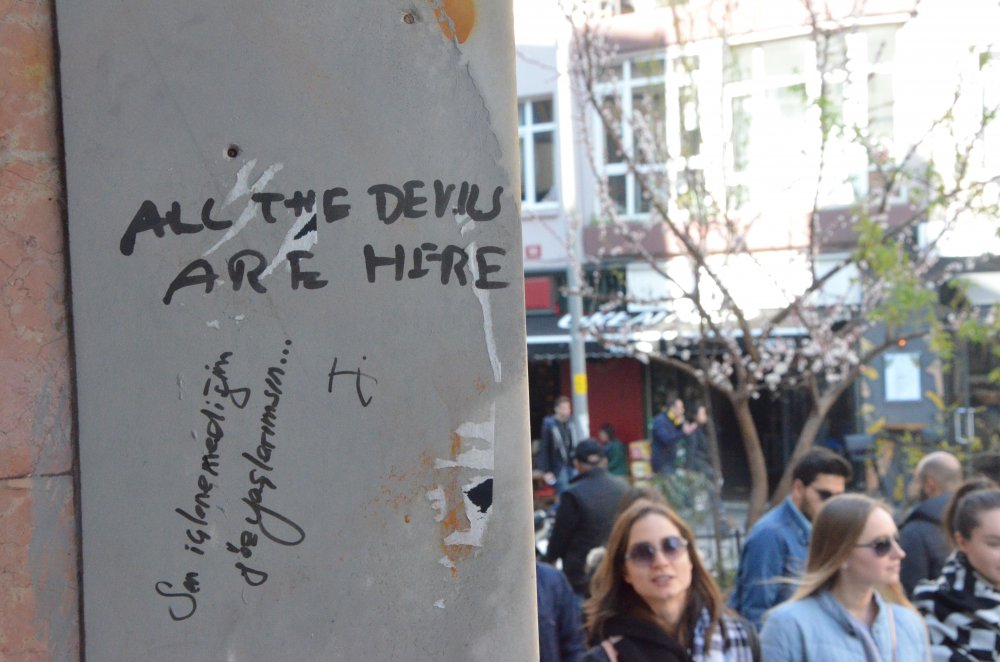 ALL THE DEVILS
ARE HERE
Sen içlenemediğim
gözyaşlarımsın...